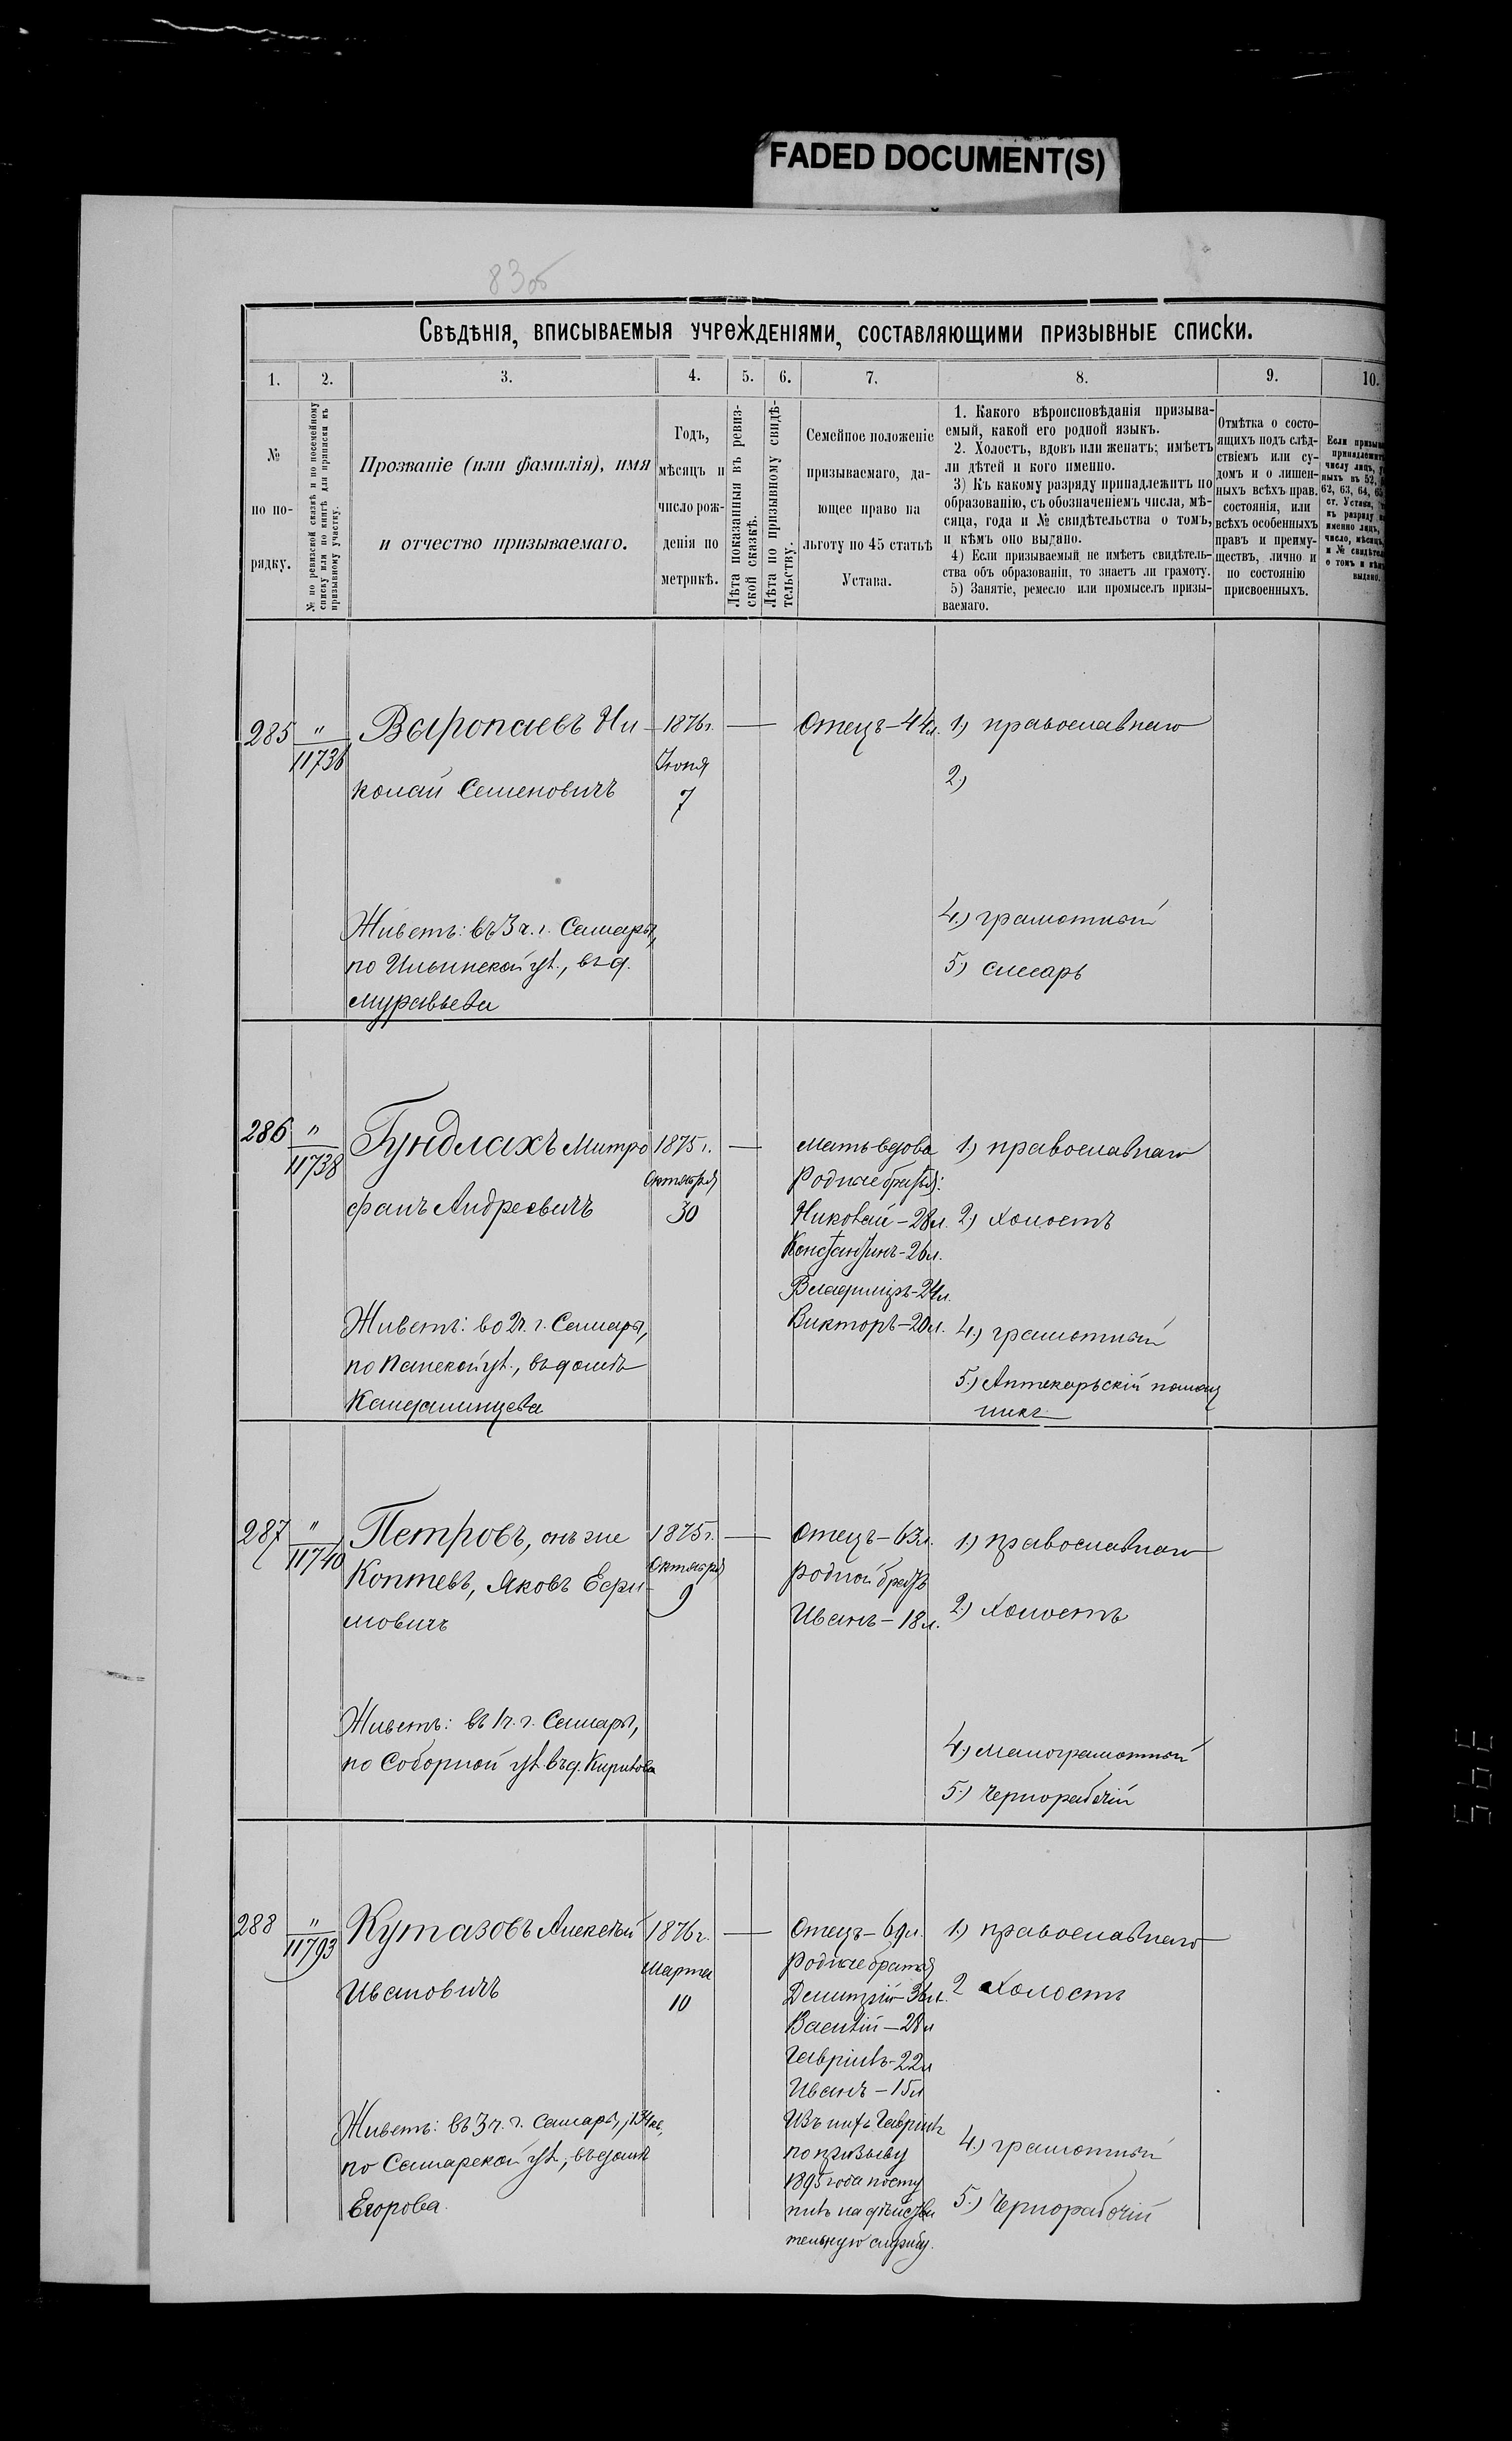 FADED DOCUMENT(S)
83об
Свѣдѣнія, вписываемыя учрежденіями, составляющими призывные списки.
1. 2. 3. 4. 5. 6. 7. 8. 9. 10.
№
по по-
рядку.
№ по ревизской сказкѣ и по посемейному
списку или по книгѣ для приписки къ
призывному участку.
Прозваніе (или фамилія), имя
и отчество призываемаго.
Годъ,
мѣсяцъ и
число рож-
денія по
метрикѣ.
Лѣта показанныя въ ревиз-
ской сказкѣ.
Лѣта по призывному свидѣ-
тельству.
Семейное положеніе
призываемаго, да-
ющее право на
льготу по 45 статьѣ
Устава.
1. Какого вѣроисповѣданія призыва-
емый, какой его родной языкъ.
2. Холостъ, вдовъ или женатъ; имѣетъ
ли дѣтей и кого именно.
3) Къ какому разряду принадлежитъ по
образованію, съ обозначеніемъ числа, мѣ-
сяца, года и № свидѣтельства о томъ,
и кѣмъ оно выдано.
4) Если призываемый не имѣетъ свидѣтель-
ства объ образованіи, то знаетъ ли грамоту.
5) Занятіе, ремесло или промыселъ призы-
ваемаго.
Отмѣтка о состо-
ящихъ подъ слѣд-
ствіемъ или су-
домъ и о лишен-
ныхъ всѣхъ прав.
состоянія, или
всѣхъ особенныхъ
правъ и преиму-
ществъ, лично и
по состоянію
присвоенныхъ.
Если
числу лицъ,
ныхъ въ 52,
62, 63, 64,
ст. Устава,
къ разряду
именно лицъ,
число, мѣсяцъ,
и №
о томъ и
выдано.
285
"
11736
Варопаевъ Ни
колай Семеновичъ
Живетъ: въ 3 ч. г. Самары,
по Ильинской ул., въ д.
Муравьева
1876 г.
Іюня
7
Отецъ - 44 л.
1) православнаго
2)
4.) грамотный
5) слесарь
286
"
11738
Гундлахъ Митро
фанъ Андреевичъ
Живетъ: во 2 ч. г. Самары,
по Панской ул., въ домѣ
1875 г.
Октября
30
Мать вдова
Родные братья:
Николай - 28 л.
Константинъ - 26 л.
Владиміръ - 24 л.
Викторъ - 20 л.
1.) православнаго
2) Холостъ
4.) грамотный
5.) Аптекарьскій помощ
никъ
287
"
11740
Петровъ, онъ же
Коптевъ, Яковъ Ефи
мовичъ
Живетъ: въ 1 ч. г. Самары,
по Соборной ул. въ д. Кирилова
1875 г.
Октября
9
Отецъ - 63 л.
родной братъ
Иванъ - 18 л.
1) православнаго
2.) Холостъ
4.) малограмотный
5.) Чернорабочій
288
"
11793
Кутазовъ Алексѣй
Ивановичъ
Живетъ: въ 3 ч. г. Самары, 134 кв,
по Самарской ул., въ домѣ
Егорова.
1876 г.
Марта
10
Отецъ - 69 л.
родные братья
Дмитрій - 36 л.
Василій - 28 л
Гавріилъ - 22 л
Иванъ - 15 л
Изъ нихъ Гавріилъ
по призыву
1895 года посту
пилъ на дѣйстви
тельную службу.
1.) православнаго
2 Холостъ
4.) грамотный
5.) Чернорабочій
395